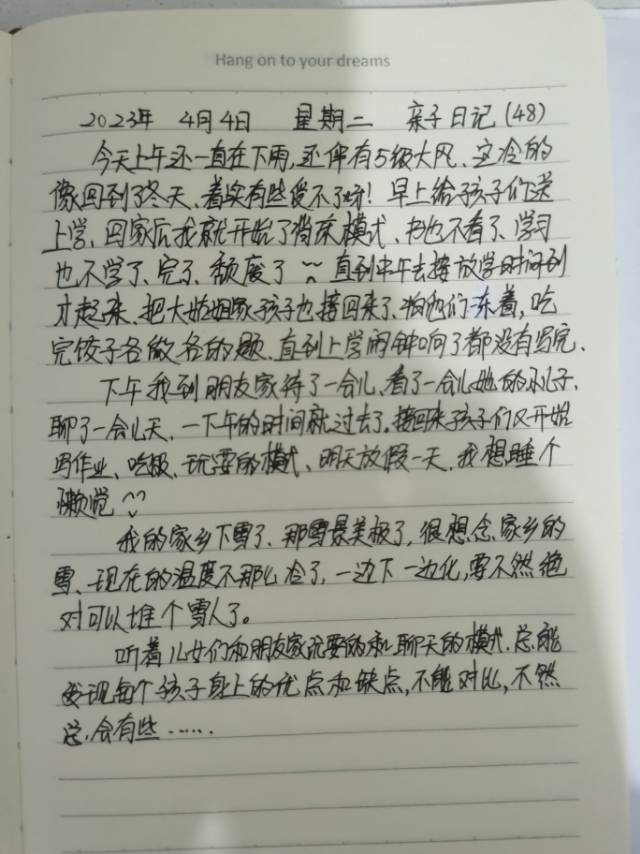 Hang on to your dreams
2023年 4月4日 星期二 亲子日记(48)
今天上午还一直在下雨,还伴有5级大风、空冷的
像回到了冬天、着实有些受不了呀!早上给孩子们送
上学、回家后我就开始了躺床模式、书也不看了、学习
也不学了、完了、颓废了 直到中午去接放学时间到
才起来、把大姑姐家孩子也接回来了、怕他们冻着,吃
完饺子各做各的题、直到上学闹钟响了都没有写完、
下午我到朋友家待了一会儿、看了一会儿她的小儿子、
聊了一会儿天、一下午的时间就过去了。接回来孩子们又开始
写作业、吃饭、玩耍的模式、明天放假一天、我想睡个
懒觉
我的家乡下雪了、那雪景美极了,很想念家乡的
雪、现在的温度不那么冷了,一边下一边化,要不然绝
对可以堆个雪人了。
听着儿女们和朋友家玩耍的和聊天的模式、总能
发现每个孩子身上的优点和缺点,不能对比,不然
总会有些……